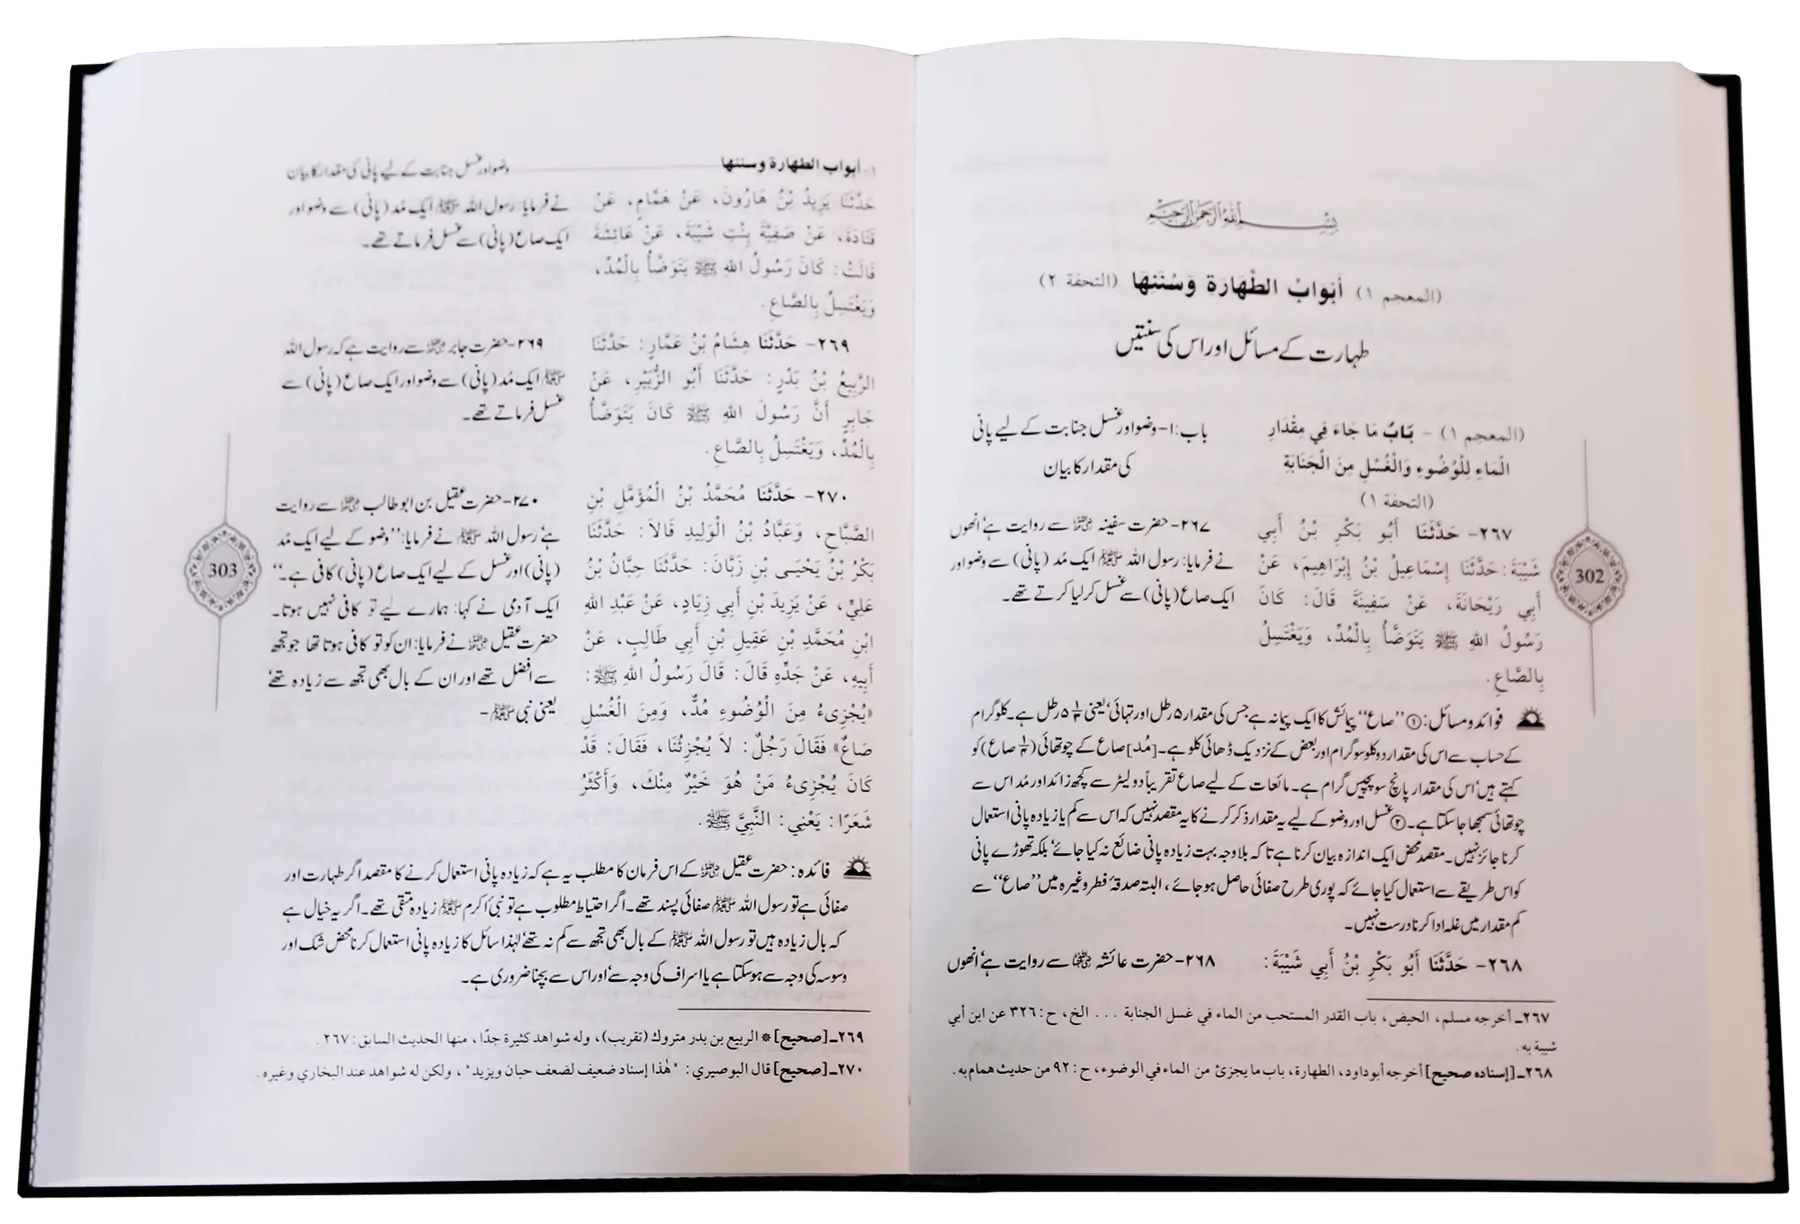 بِسْمِ اللهِ الرَّحْمٰنِ الرَّحِيْمِ
(المعجم ١) أَبْوَابُ الطَّهَارَةِ وَسُنَنِهَا (التحفة ٢)
طہارت کے مسائل اور اس کی سنتیں
(المعجم ١) - بَابُ مَا جَاءَ فِي مِقْدَارِ
الْمَاءِ لِلْوُضُوءِ وَالْغُسْلِ مِنَ الْجَنَابَةِ
(التحفة ١)
باب:۱- وضو اور غسل جنابت کے لیے پانی
کی مقدار کا بیان
٢٦٧- حَدَّثَنَا أَبُو بَكْرِ بْنُ أَبِي
شَيْبَةَ: حَدَّثَنَا إِسْمَاعِيلُ بْنُ إِبْرَاهِيمَ، عَنْ
أَبِي رَيْحَانَةَ، عَنْ سَفِينَةَ قَالَ: كَانَ
رَسُولُ اللهِ ﷺ يَتَوَضَّأُ بِالْمُدِّ، وَيَغْتَسِلُ
بِالصَّاعِ.
۲۶۷- حضرت سفینہ ؓ سے روایت ہے‘ انھوں
نے فرمایا: رسول اللہ ﷺ ایک مُد (پانی) سے وضو اور
ایک صاع (پانی) سے غسل کر لیا کرتے تھے۔
فوائد و مسائل: ① ”صاع“ پیمائش کا ایک پیمانہ ہے جس کی مقدار ۵ رطل اور تہائی‘ یعنی ۵ ۱/۳ رطل ہے۔ کلوگرام
کے حساب سے اس کی مقدار دو کلو سو گرام اور بعض کے نزدیک ڈھائی کلو ہے۔ [مُد] صاع کے چوتھائی (۱/۴ صاع) کو
کہتے ہیں‘ اس کی مقدار پانچ سو پچیس گرام ہے۔ مائعات کے لیے صاع تقریباً دو لیٹر سے کچھ زائد اور مُد اس سے
چوتھائی سمجھا جا سکتا ہے۔ ② غسل اور وضو کے لیے یہ مقدار ذکر کرنے کا یہ مقصد نہیں کہ اس سے کم یا زیادہ پانی استعمال
کرنا جائز نہیں۔ مقصد محض ایک اندازہ بیان کرنا ہے تاکہ بلاوجہ بہت زیادہ پانی ضائع نہ کیا جائے‘ بلکہ تھوڑے پانی
کو اس طریقے سے استعمال کیا جائے کہ پوری طرح صفائی حاصل ہو جائے، البتہ صدقۂ فطر وغیرہ میں ”صاع“ سے
کم مقدار میں غلہ ادا کرنا درست نہیں۔
٢٦٨- حَدَّثَنَا أَبُو بَكْرِ بْنُ أَبِي شَيْبَةَ:
۲۶۸- حضرت عائشہ ؓ سے روایت ہے‘ انھوں
٢٦٧ـ أخرجه مسلم، الحيض، باب القدر المستحب من الماء في غسل الجنابة . . . الخ، ح: ٣٢٦ عن ابن أبي
شيبة به.
٢٦٨ـ [إسناده صحيح] أخرجه أبوداود، الطهارة، باب ما يجزئ من الماء في الوضوء، ح: ٩٢ من حديث همام به.
302
١- أبواب الطهارة وسننها
وضو اور غسل جنابت کے لیے پانی کی مقدار کا بیان
حَدَّثَنَا يَزِيدُ بْنُ هَارُونَ، عَنْ هَمَّامٍ، عَنْ
قَتَادَةَ، عَنْ صَفِيَّةَ بِنْتِ شَيْبَةَ، عَنْ عَائِشَةَ
قَالَتْ: كَانَ رَسُولُ اللهِ ﷺ يَتَوَضَّأُ بِالْمُدِّ،
وَيَغْتَسِلُ بِالصَّاعِ.
نے فرمایا: رسول اللہ ﷺ ایک مُد (پانی) سے وضو اور
ایک صاع (پانی) سے غسل فرماتے تھے۔
٢٦٩- حَدَّثَنَا هِشَامُ بْنُ عَمَّارٍ: حَدَّثَنَا
الرَّبِيعُ بْنُ بَدْرٍ: حَدَّثَنَا أَبُو الزُّبَيْرِ، عَنْ
جَابِرٍ أَنَّ رَسُولَ اللهِ ﷺ كَانَ يَتَوَضَّأُ
بِالْمُدِّ، وَيَغْتَسِلُ بِالصَّاعِ.
۲۶۹- حضرت جابر ؓ سے روایت ہے کہ رسول اللہ
ﷺ ایک مُد (پانی) سے وضو اور ایک صاع (پانی) سے
غسل فرماتے تھے۔
٢٧٠- حَدَّثَنَا مُحَمَّدُ بْنُ الْمُؤَمَّلِ بْنِ
الصَّبَّاحِ، وَعَبَّادُ بْنُ الْوَلِيدِ قَالَا: حَدَّثَنَا
بَكْرُ بْنُ يَحْيَى بْنِ زَبَّانَ: حَدَّثَنَا حِبَّانُ بْنُ
عَلِيٍّ، عَنْ يَزِيدَ بْنِ أَبِي زِيَادٍ، عَنْ عَبْدِ اللهِ
ابْنِ مُحَمَّدِ بْنِ عَقِيلِ بْنِ أَبِي طَالِبٍ، عَنْ
أَبِيهِ، عَنْ جَدِّهِ قَالَ: قَالَ رَسُولُ اللهِ ﷺ:
«يُجْزِىءُ مِنَ الْوُضُوءِ مُدٌّ، وَمِنَ الْغُسْلِ
صَاعٌ» فَقَالَ رَجُلٌ: لَا يُجْزِئُنَا، فَقَالَ: قَدْ
كَانَ يُجْزِىءُ مَنْ هُوَ خَيْرٌ مِنْكَ، وَأَكْثَرُ
شَعَرًا: يَعْنِي: النَّبِيَّ ﷺ.
۲۷۰- حضرت عقیل بن ابو طالب ؓ سے روایت
ہے‘ رسول اللہ ﷺ نے فرمایا: ”وضو کے لیے ایک مُد
(پانی) اور غسل کے لیے ایک صاع (پانی) کافی ہے۔“
ایک آدمی نے کہا: ہمارے لیے تو کافی نہیں ہوتا۔
حضرت عقیل ؓ نے فرمایا: ان کو تو کافی ہوتا تھا جو تجھ
سے افضل تھے اور ان کے بال بھی تجھ سے زیادہ تھے‘
یعنی نبی ﷺ۔
فائدہ: حضرت عقیل ؓ کے اس فرمان کا مطلب یہ ہے کہ زیادہ پانی استعمال کرنے کا مقصد اگر طہارت اور
صفائی ہے تو رسول اللہ ﷺ صفائی پسند تھے۔ اگر احتیاط مطلوب ہے تو نبی ٔاکرم ﷺ زیادہ متقی تھے۔ اگر یہ خیال ہے
کہ بال زیادہ ہیں تو رسول اللہ ﷺ کے بال بھی تجھ سے کم نہ تھے‘ لہٰذا سائل کا زیادہ پانی استعمال کرنا محض شک اور
وسوسہ کی وجہ سے ہو سکتا ہے یا اسراف کی وجہ سے‘ اور اس سے بچنا ضروری ہے۔
٢٦٩ـ [صحيح] * الربيع بن بدر متروك (تقريب)، وله شواهد كثيرة جدًا، منها الحديث السابق: ٢٦٧.
٢٧٠ـ [صحيح] قال البوصيري: "هٰذا إسناد ضعيف لضعف حبان ويزيد"، ولكن له شواهد عند البخاري وغيره.
303